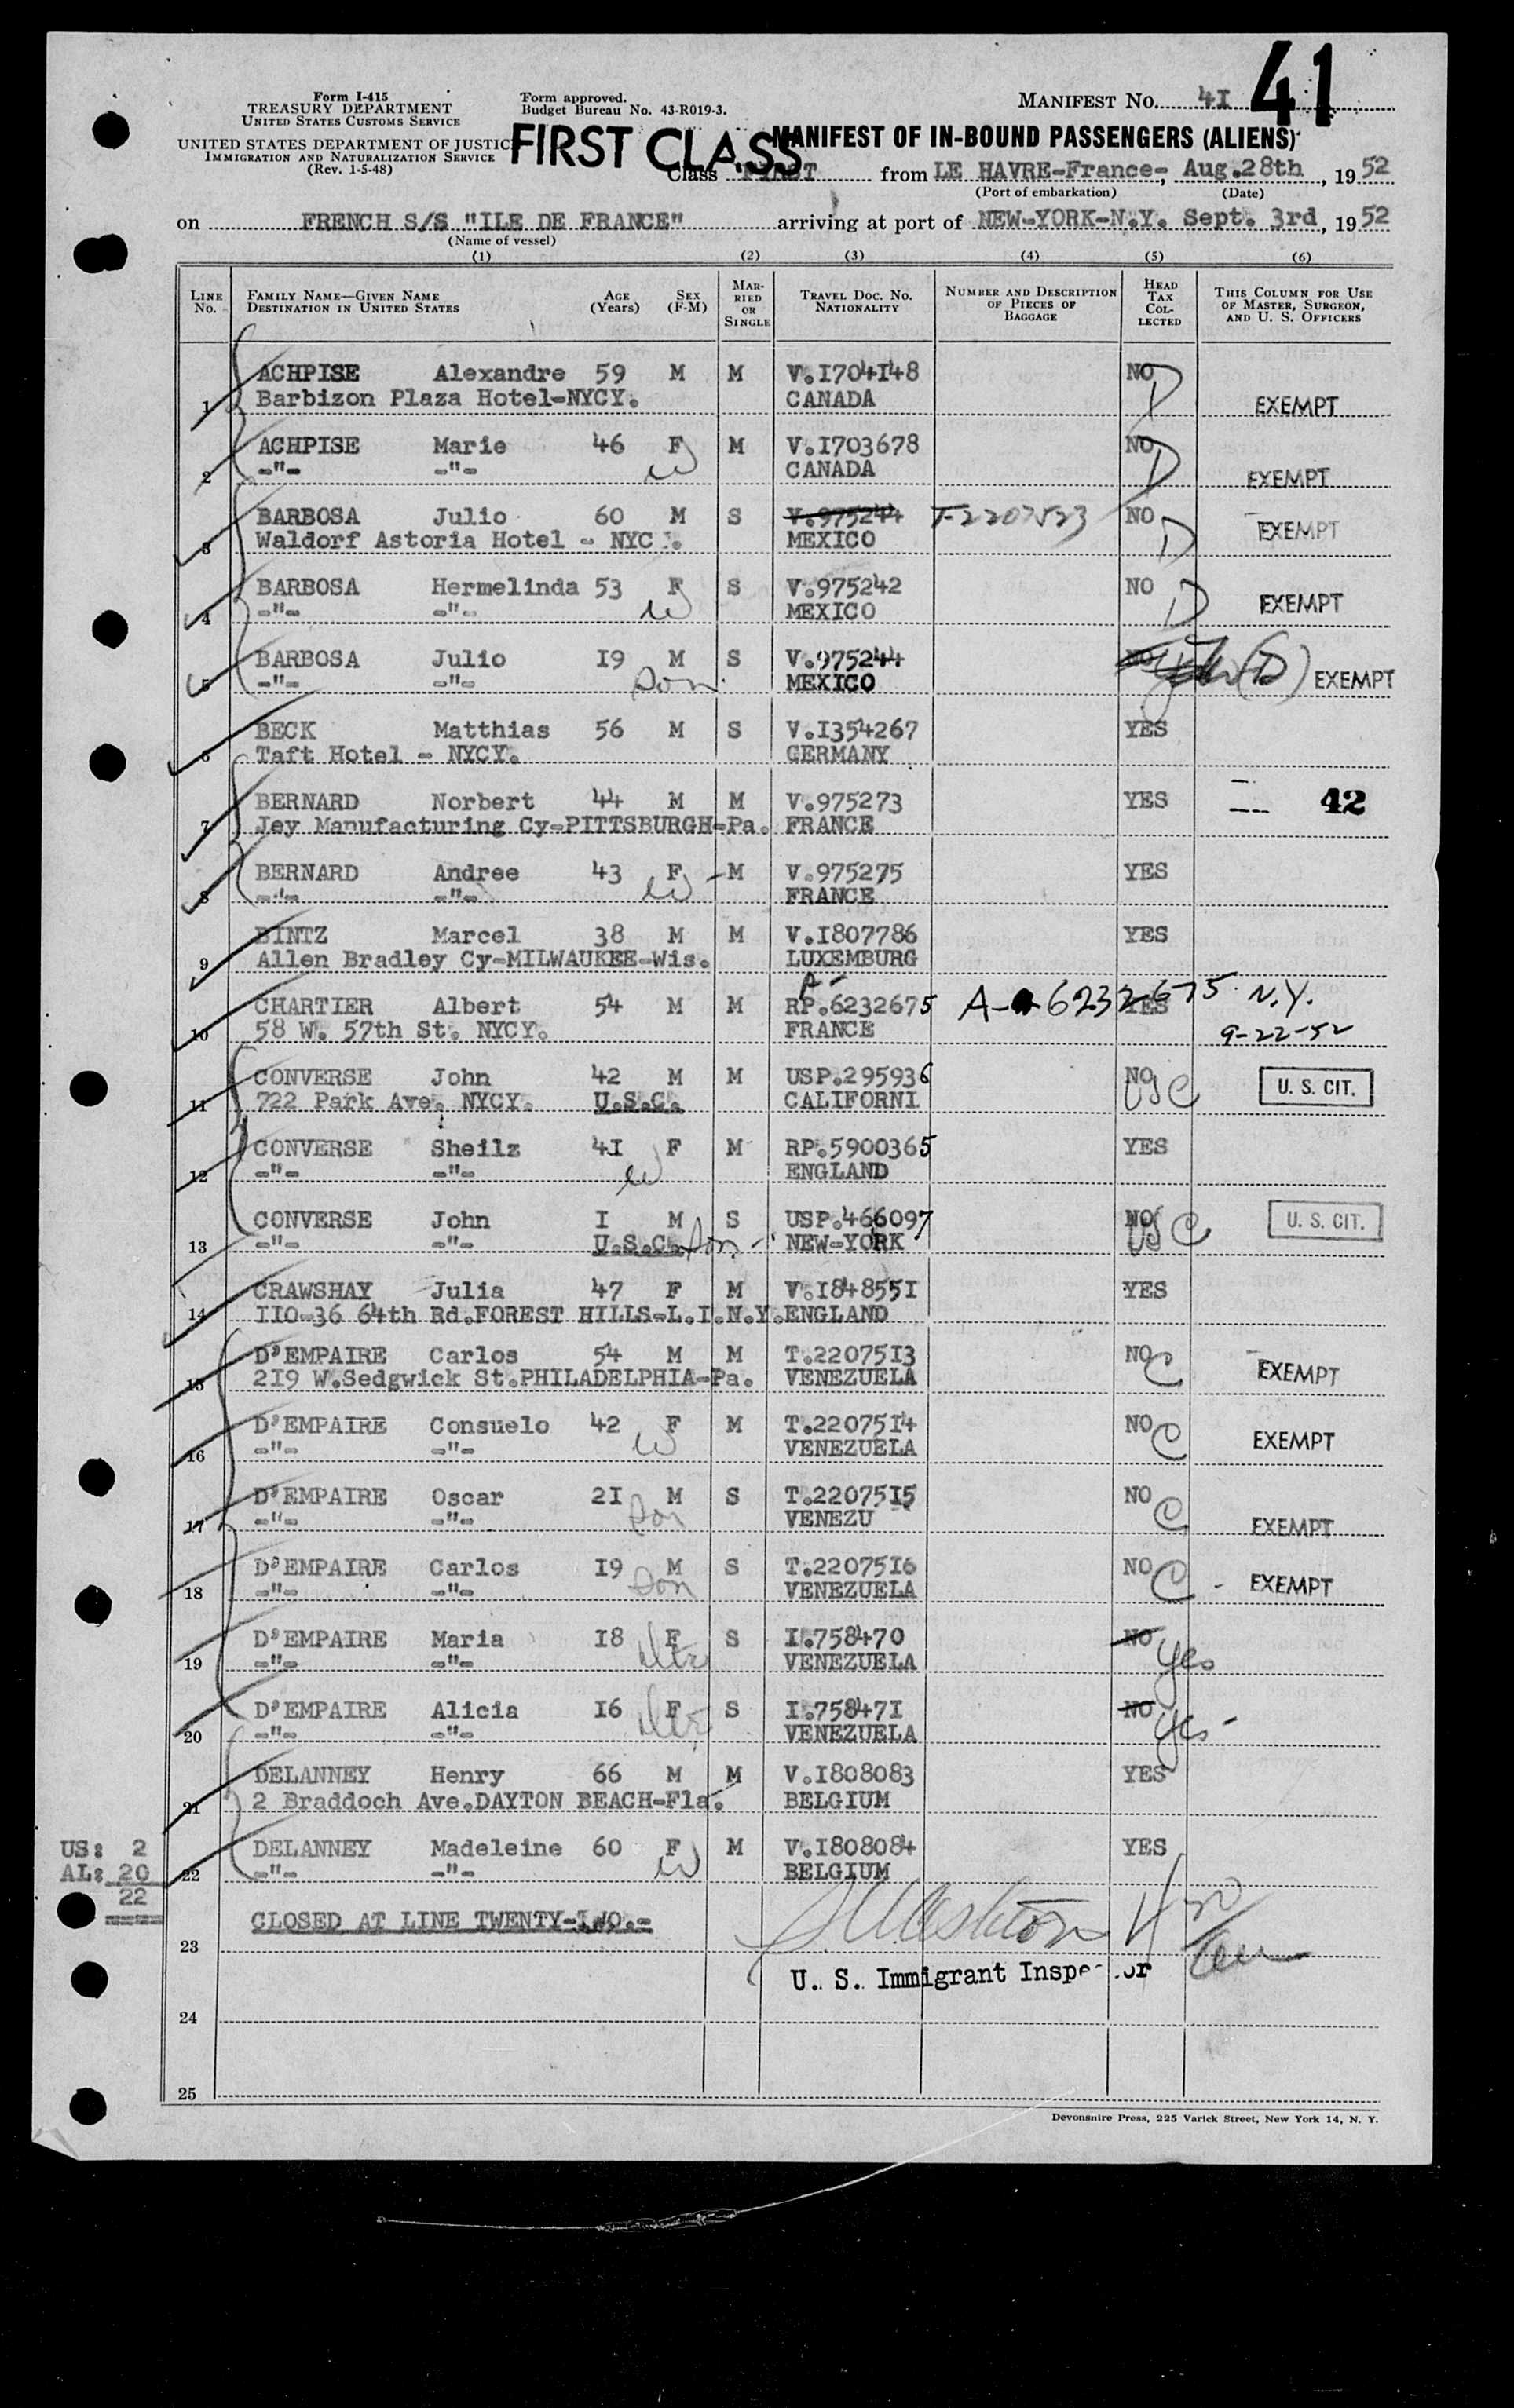 Form I-415
TREASURY DEPARTMENT
UNITED STATES CUSTOMS SERVICE
UNITED STATES DEPARTMENT OF JUSTICE
IMMIGRATION AND NATURALIZATION SERVICE
(Rev. 1-5-48)
Form approved.
Budget Bureau No. 43-R019-3.
MANIFEST NO. 4I 41
FIRST CLASS
MANIFEST OF IN-BOUND PASSENGERS (ALIENS)
Class FIRST from LE HAVRE-France-, Aug.28th, 1952
(Port of embarkation) (Date)
on FRENCH S/S "ILE DE FRANCE" arriving at port of NEW-YORK-N.Y. Sept. 3rd, 1952
(Name of vessel)
(1) (2) (3) (4) (5) (6)
LINE NO. FAMILY NAME—GIVEN NAME DESTINATION IN UNITED STATES AGE (Years) SEX (F-M) MARRIED OR SINGLE TRAVEL DOC. NO. NATIONALITY NUMBER AND DESCRIPTION OF PIECES OF BAGGAGE HEAD TAX COLLECTED THIS COLUMN FOR USE OF MASTER, SURGEON, AND U. S. OFFICERS
ACHPISE Alexandre 59 M M V.I704I48 NO D
1 Barbizon Plaza Hotel-NYCY. CANADA EXEMPT
ACHPISE Marie 46 F W M V.I703678 NO D
2 -"- -"- CANADA EXEMPT
BARBOSA Julio 60 M S V.975244 T-2207523 NO D EXEMPT
3 Waldorf Astoria Hotel - NYC . MEXICO
BARBOSA Hermelinda 53 F W S V.975242 NO D EXEMPT
4 -"- -"- MEXICO
BARBOSA Julio I9 M S V.975244 NO (D) EXEMPT
5 -"- -"- son MEXICO
BECK Matthias 56 M S V.I354267 YES
6 Taft Hotel - NYCY. GERMANY
BERNARD Norbert 44 M M V.975273 YES 42
7 Jey Manufacturing Cy-PITTSBURGH-Pa. FRANCE
BERNARD Andree 43 F W M V.975275 YES
8 -"- -"- FRANCE
BINTZ Marcel 38 M M V.I807786 YES
9 Allen Bradley Cy-MILWAUKEE-Wis. LUXEMBURG
A-
CHARTIER Albert 54 M M RP.6232675 A-6232675 YES N.Y.
10 58 W. 57th St. NYCY. FRANCE 9-22-52
CONVERSE John 42 M M USP.295936 NO USC U. S. CIT.
11 722 Park Ave. NYCY. U.S.C. CALIFORNI
CONVERSE Sheilz 4I F W M RP.5900365 YES
12 -"- -"- ENGLAND
CONVERSE John I M S USP.466097 NO USC U. S. CIT.
13 -"- -"- U.S.C. son NEW-YORK
CRAWSHAY Julia 47 F M V.I84855I YES
14 IIO-36 64th Rd.FOREST HILLS-L.I.N.Y.ENGLAND
D'EMPAIRE Carlos 54 M M T.22075I3 NO C EXEMPT
15 2I9 W.Sedgwick St.PHILADELPHIA-Pa. VENEZUELA
D'EMPAIRE Consuelo 42 F W M T.22075I4 NO C EXEMPT
16 -"- -"- VENEZUELA
D'EMPAIRE Oscar 2I M S T.22075I5 NO C
17 -"- -"- son VENEZU EXEMPT
D'EMPAIRE Carlos I9 M S T.22075I6 NO C EXEMPT
18 -"- -"- son VENEZUELA
D'EMPAIRE Maria I8 F S I.758470 NO yes
19 -"- -"- dtr VENEZUELA
D'EMPAIRE Alicia I6 F S I.75847I NO yes
20 -"- -"- dtr VENEZUELA
DELANNEY Henry 66 M M V.I808083 YES
21 2 Braddoch Ave.DAYTON BEACH-Fla. BELGIUM
US: 2 DELANNEY Madeleine 60 F W M V.I808084 YES
AL: 20 22 -"- -"- BELGIUM
22
CLOSED AT LINE TWENTY-TWO.-
23
U. S. Immigrant Inspector
24
25
Devonshire Press, 225 Varick Street, New York 14, N. Y.